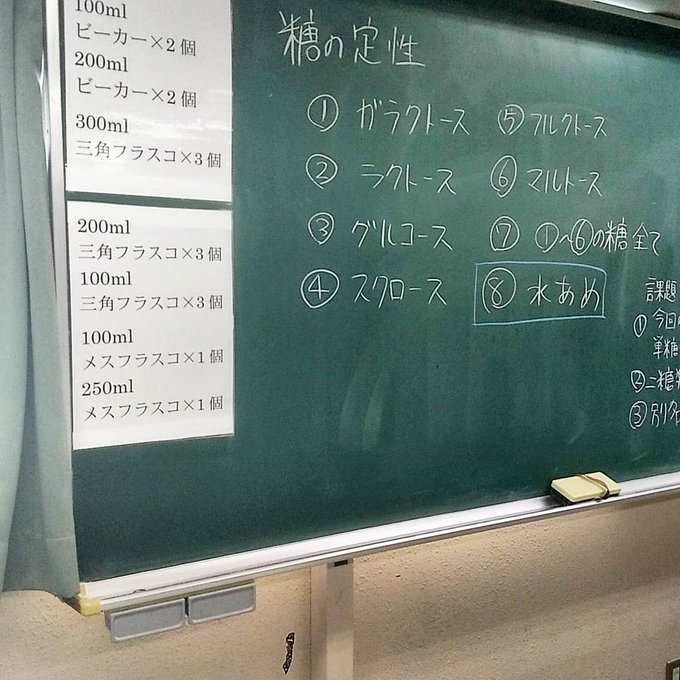 100ml
ビーカー×2個
200ml
ビーカー×2個
300ml
三角フラスコ×3個
200ml
三角フラスコ×3個
100ml
三角フラスコ×3個
100ml
メスフラスコ×1個
250ml
メスフラスコ×1個
糖の定性
① ガラクトース
② ラクトース
③ グルコース
④ スクロース
⑤ フルクトース
⑥ マルトース
⑦ ①〜⑥の糖全て
⑧ 水あめ
課題
① 今回
単糖
② 二糖
③ 別名